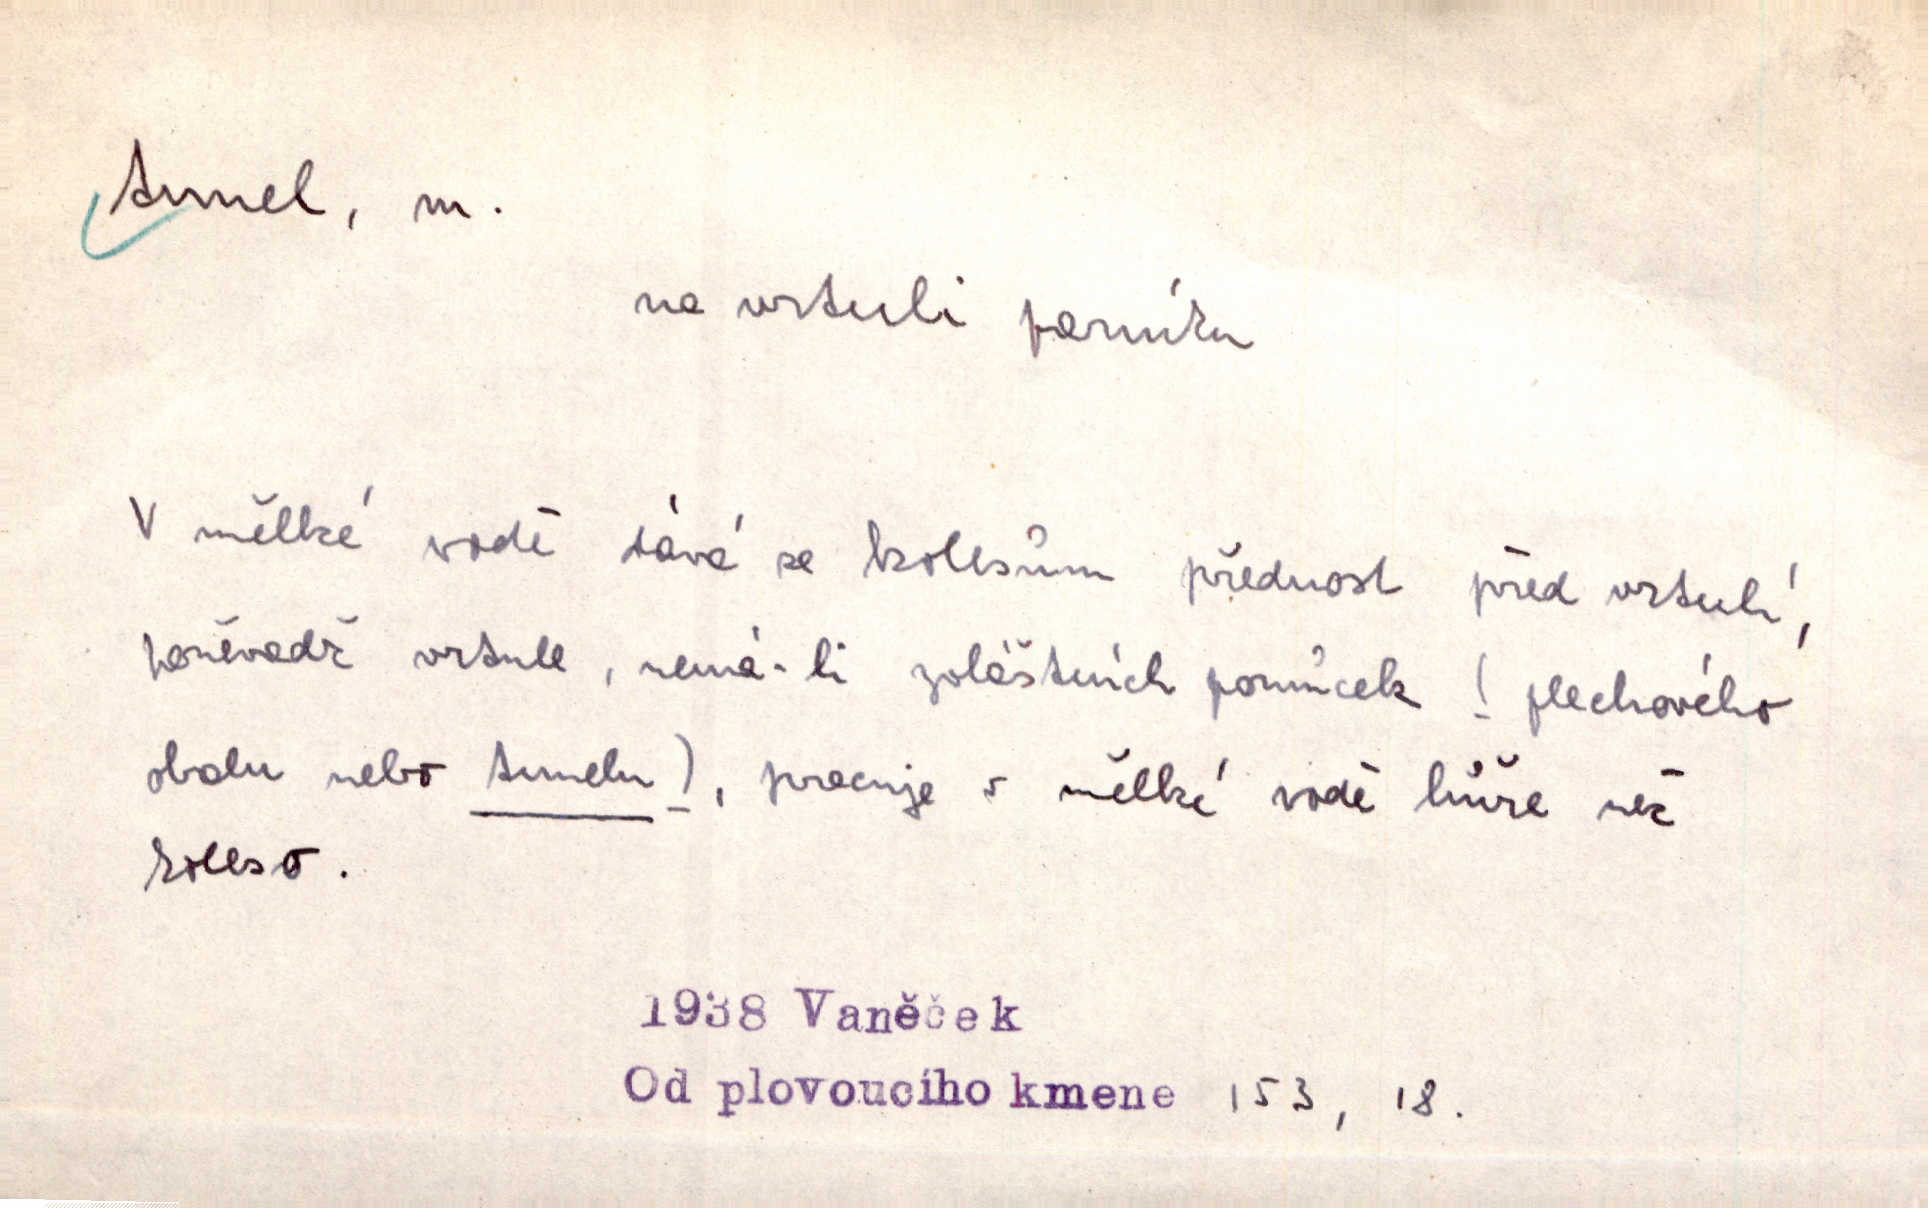 tunel, m.
na vrtuli parníku
V mělké vodě dává se kolesům přednost před vrtulí,
poněvadž vrtule, nemá-li zvláštních pomůcek (plechového
obalu nebo tunelu), pracuje v mělké vodě hůře než
koleso.
1938 Vaněček
Od plovoucího kmene 153, 18.